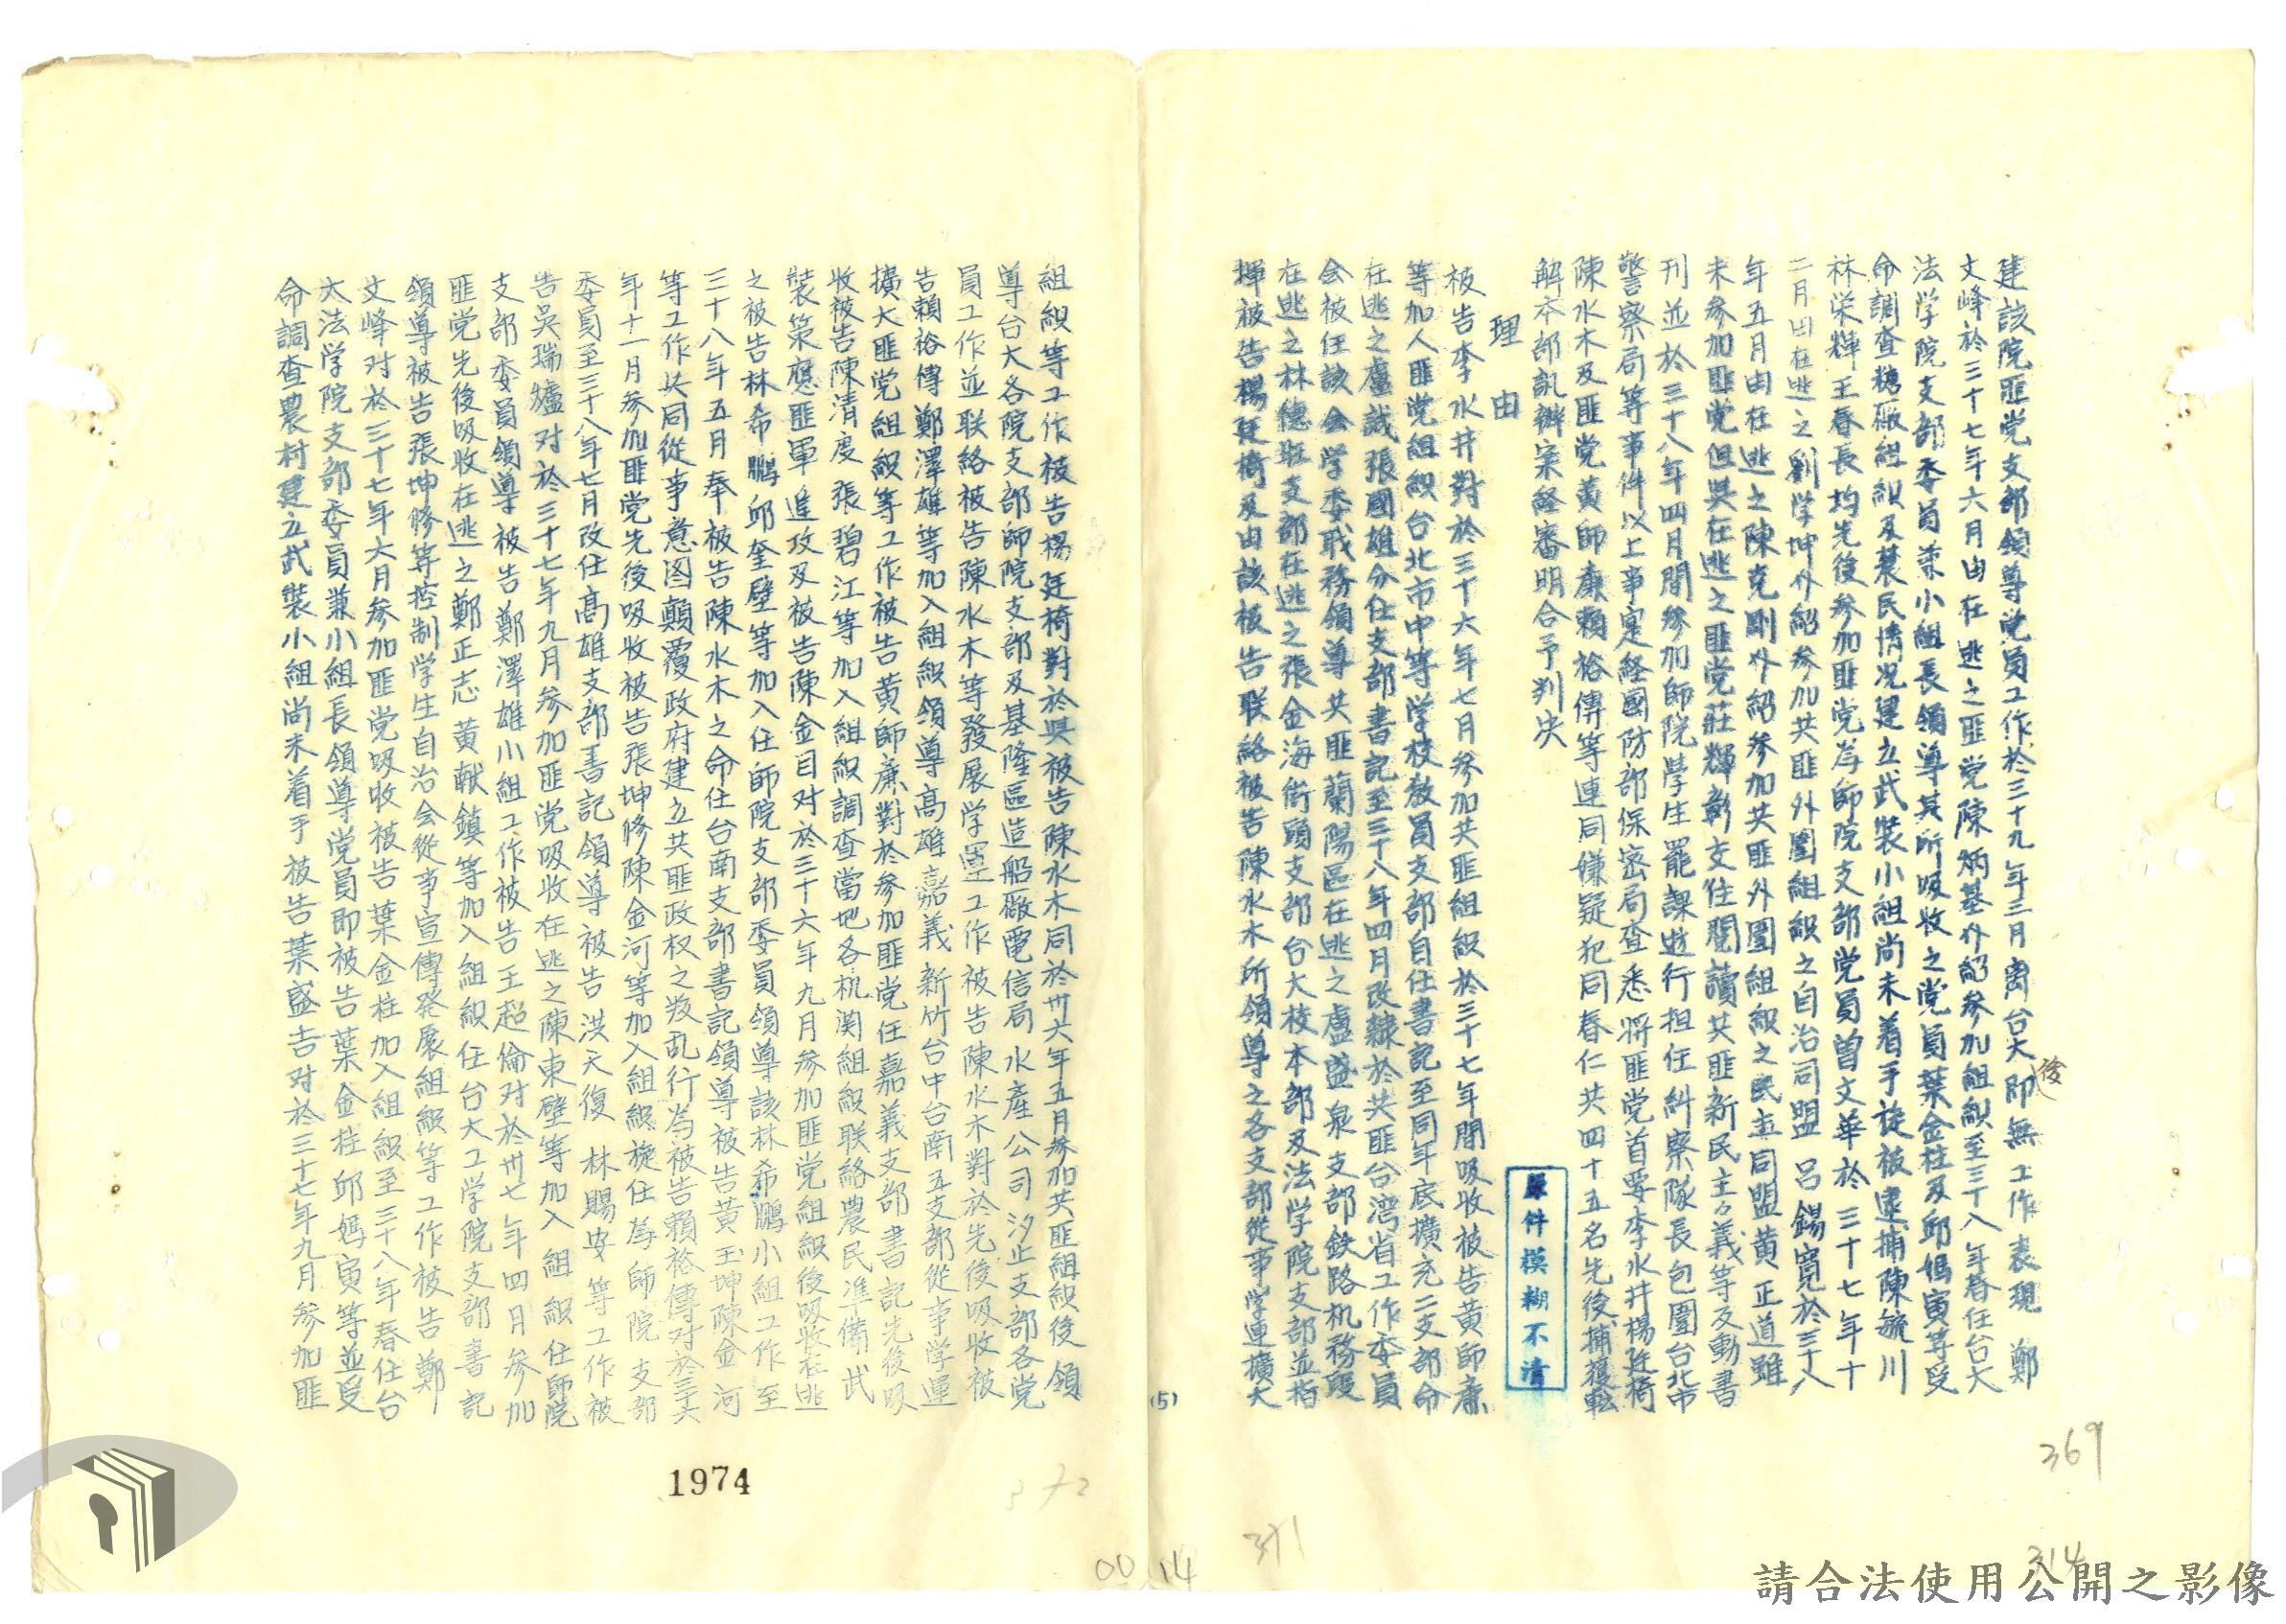 建該院匪党支部領導党員工作於三十九年三月离台大後即無工作表現 鄭
文峰於三十七年六月由在逃之匪党陳炳基介紹參加組織至三十八年春任台大
法学院支部委員兼小組長領導其所吸收之党員葉金柱及邱媽寅等受
命調查糖廠組織及農民情况建立武裝小組尚未着手旋被逮捕陳毓川
林榮輝王春長均先後參加匪党為師院支部党員曾文華於三十七年十
二月由在逃之劉学坤介紹參加共匪外圍組織之自治同盟 呂錫寬於三十八
年五月由在逃之陳克剛介紹參加共匪外圍組織之民主同盟黄正道雖
未參加匪党但與在逃之匪党莊輝彰交往閱讀共匪新民主々義等反動書
刊並於三十八年四月間參加師院學生罷課遊行担任糾察隊長包圍台北市
警察局等事件以上事寔経國防部保密局查悉將匪党首要李水井楊廷椅
陳水木及匪党黄師廉賴裕傳等連同嫌疑犯同春仁共四十五名先後捕獲転
解本部訊辦案経審明合予判决
理由
被告李水井對於三十六年七月參加共匪組織於三十七年間吸收被告黄師廉
等加入匪党組織台北市中等学校教員支部自任書記至同年底擴充二支部命
在逃之盧誠張國雄分任支部書記至三十八年四月改隸於共匪台湾省工作委員
会被任該会学委職務領導共匪蘭陽區在逃之盧盛泉支部鉄路机務段
在逃之林德旺支部在逃之張金海街頭支部台大校本部及法学院支部並指
揮被告楊廷椅及由該被告联絡被告陳水木所領導之各支部從事学運擴大
原件模糊不清
369
314
371
(5)
組織等工作被告楊廷椅對於與被告陳水木同於卅六年五月參加共匪組織後領
導台大各院支部師院支部及基隆區造船廠電信局水產公司汐止支部各党
員工作並联絡被告陳水木等發展学運工作被告陳水木對於先後吸收被
告賴裕傳鄭澤雄等加入組織領導高雄嘉義新竹台中台南五支部從事学運
擴大匪党組織等工作被告黄師廉對於參加匪党任嘉義支部書記先後吸
收被告陳清度張碧江等加入組織調查當地各机関組織联絡農民準備武
裝策應匪軍進攻及被告陳金目对於三十六年九月參加匪党組織後吸收在逃
之被告林希鵬邱奎壁等加入任師院支部委員領導該林希鵬小組工作至
三十八年五月奉被告陳水木之命任台南支部書記領導被告黄玉坤陳金河
等工作共同從事意图顛覆政府建立共匪政权之叛乱行為被告賴裕傳对於三六
年十一月參加匪党先後吸收被告張坤修陳金河等加入組織旋任為師院支部
委員至三十八年七月改任高雄支部書記領導被告洪天復林賜安等工作被
告吳瑞爐对於三十七年九月參加匪党吸收在逃之陳東壁等加入組織任師院
支部委員領導被告鄭澤雄小組工作被告王超倫对於卅七年四月參加
匪党先後吸收在逃之鄭正志黄献鎮等加入組織任台大工学院支部書記
領導被告張坤修等控制学生自治会從事宣傳発展組織等工作被告鄭
文峰对於三十七年六月參加匪党吸收被告葉金柱加入組織至三十八年春任台
大法学院支部委員兼小組長領導党員即被告葉金柱邱媽寅等並受
命調查農村建立武裝小組尚未着手被告葉盛吉对於三十七年九月參加匪
1974
00 14
請合法使用公開之影像